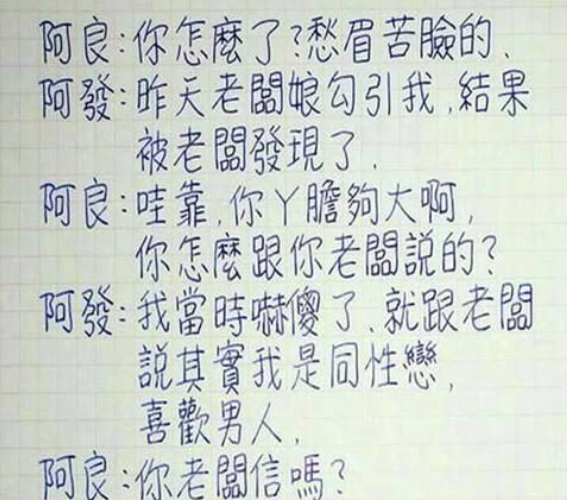 阿良:你怎麼了?愁眉苦臉的、
阿發:昨天老闆娘勾引我,結果
被老闆發現了、
阿良:哇靠,你丫膽夠大啊,
你怎麼跟你老闆說的?
阿發:我當時嚇傻了、就跟老闆
說其實我是同性戀,
喜歡男人,
阿良:你老闆信嗎?